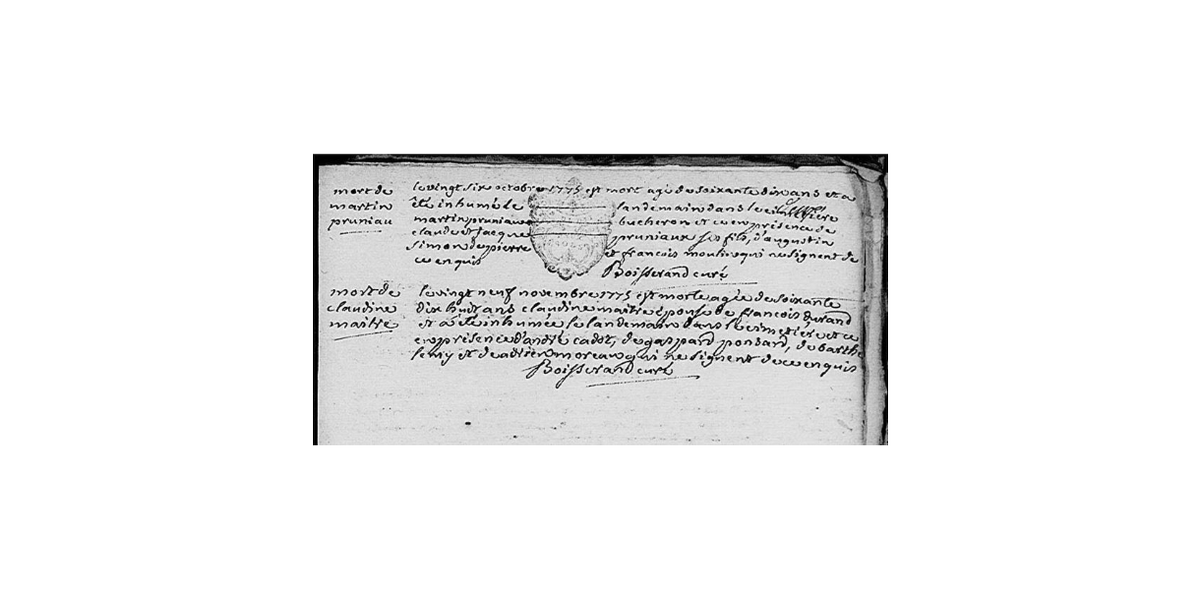 mort de
martin
pruniau
le vingt six octobre 1775 est mort agé de soixante dix ans et a
été inhumé le landemain dans le cimetière
martin pruniau bucheron et ce en présence de
claude et jacque pruniaux ses fils, d'augustin
simon de pierre et francois moulin qui ne signent de
ce enquis
Boisserand curé
mort de
claudine
maitre
le vingt neuf novembre 1775 est morte agée de soixante
dix huit ans claudine maitre épouse de francois durand
et a été inhumée le landemain dans le cimetière et ce
en présence d'andré cadot, de gaspard ponsard, de barthe
lemy et de adrien moreau qui ne signent de ce enquis
Boisserand curé